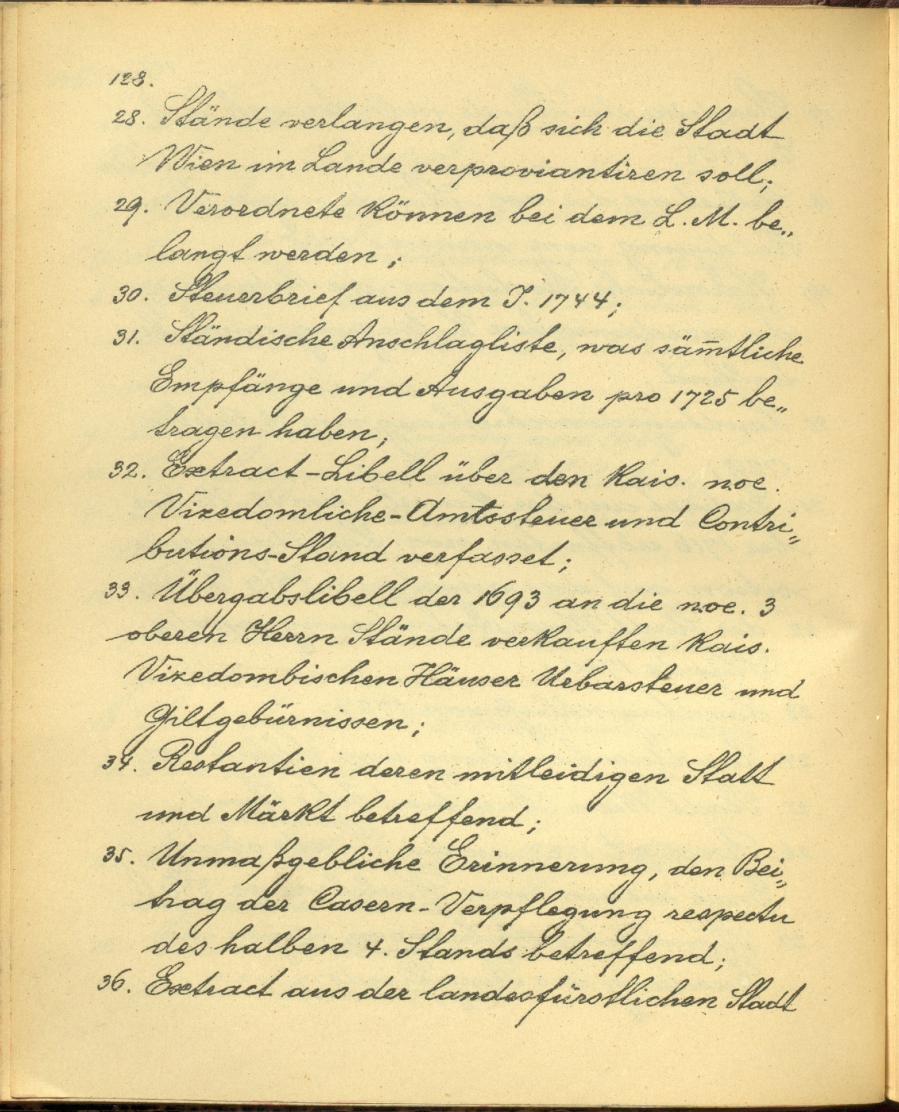 128.
28. Stände verlangen, daß sich die Stadt
Wien im Lande verproviantiren soll;
29. Verordnete können bei dem L. M. be„
langt werden;
30. Steuerbrief aus dem J. 1744;
31. Ständische Anschlagliste, was sam̄tliche
Empfänge und Ausgaben pro 1725 be„
tragen haben;
32. Extract-Libell über den Kais. noe.
Vizedomliche-Amtssteuer und Contri„
butions-Stand verfasset;
33. Übergabslibell der 1693 an die noe. 3
oberen Herrn Stände verkauften Kais.
Vizedombischen Häuser Urbarsteuer und
Giltgebürnissen;
34. Restantien deren mitleidigen Statt
und Märkt betreffend;
35. Unmaßgebliche Erinnerung, den Bei„
trag der Casern-Verpflegung respectu
des halben 4. Stands betreffend;
36. Extract aus der landesfürstlichen Stadt